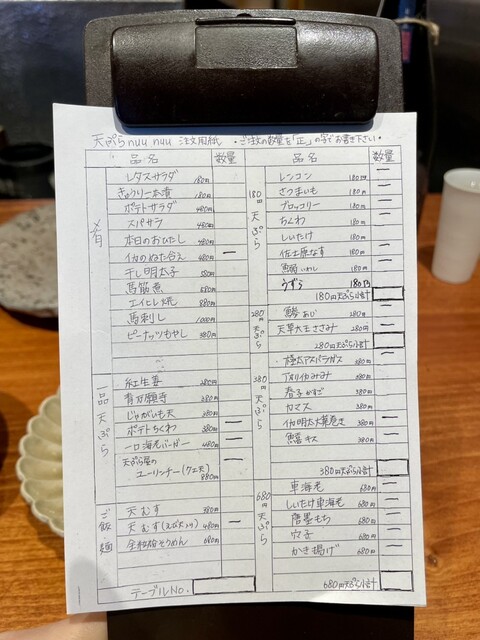 天ぷら nuu nuu 注文用紙 ・ご注文の数量を「正」の字でお書き下さい・
品名 数量
冷菜
レタスサラダ 180円
きゅうり一本漬 180円
ポテトサラダ 480円
スパサラ 480円
本日のおひたし 480円
イカのぬた合え 480円 一
干し明太子 580円
馬筋煮 680円
エイヒレ焼 880円
馬刺し 1,000円
ピーナッツもやし 380円
一品天ぷら
紅生姜 280円
青万願寺 280円
じゃがいも天 280円
ポテトちくわ 380円 一
一口海老バーガー 480円 一
天ぷら屋の
ユーリンチー(クエ天) 880円
ご飯・麺
天むす 380円
天むす(えび天入り) 480円 一
全粒粉そうめん 680円
テーブルNO.
品名 数量
180円天ぷら
レンコン 180円 一
さつまいも 180円 一
ブロッコリー 180円 一
ちくわ 180円 一
しいたけ 180円 一
佐土原なす 180円 一
鰯 いわし 180円 一
うずら 180円 一
180円天ぷら小計
280円天ぷら
鯵 あじ 280円 一
天草大王ささみ 280円 一
280円天ぷら小計
380円天ぷら
極太アスパラガス 380円
アオリイカみみ 380円
春子 かすご 380円
カマス 380円
イカ明太大葉巻き 380円 一
鱚 キス 380円 一
380円天ぷら小計
680円天ぷら
車海老 680円 一
しいたけ車海老 680円 一
唐墨もち 680円 一
穴子 680円 一
かき揚げ 680円 一
680円天ぷら小計